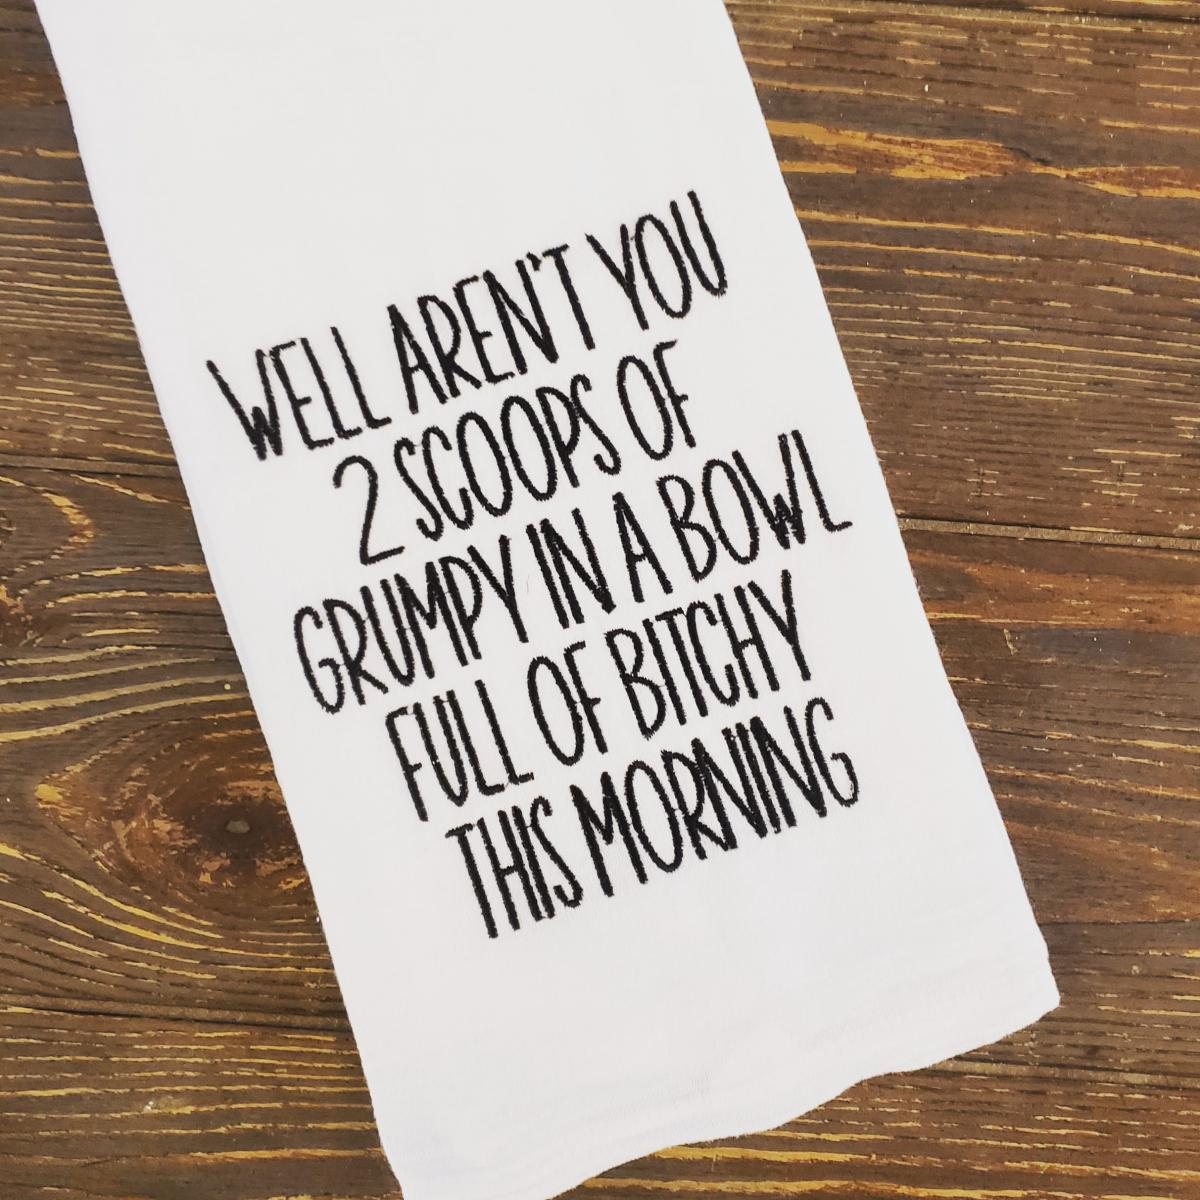 WELL AREN'T YOU
2 SCOOPS OF
GRUMPY IN A BOWL
FULL OF BITCHY
THIS MORNING